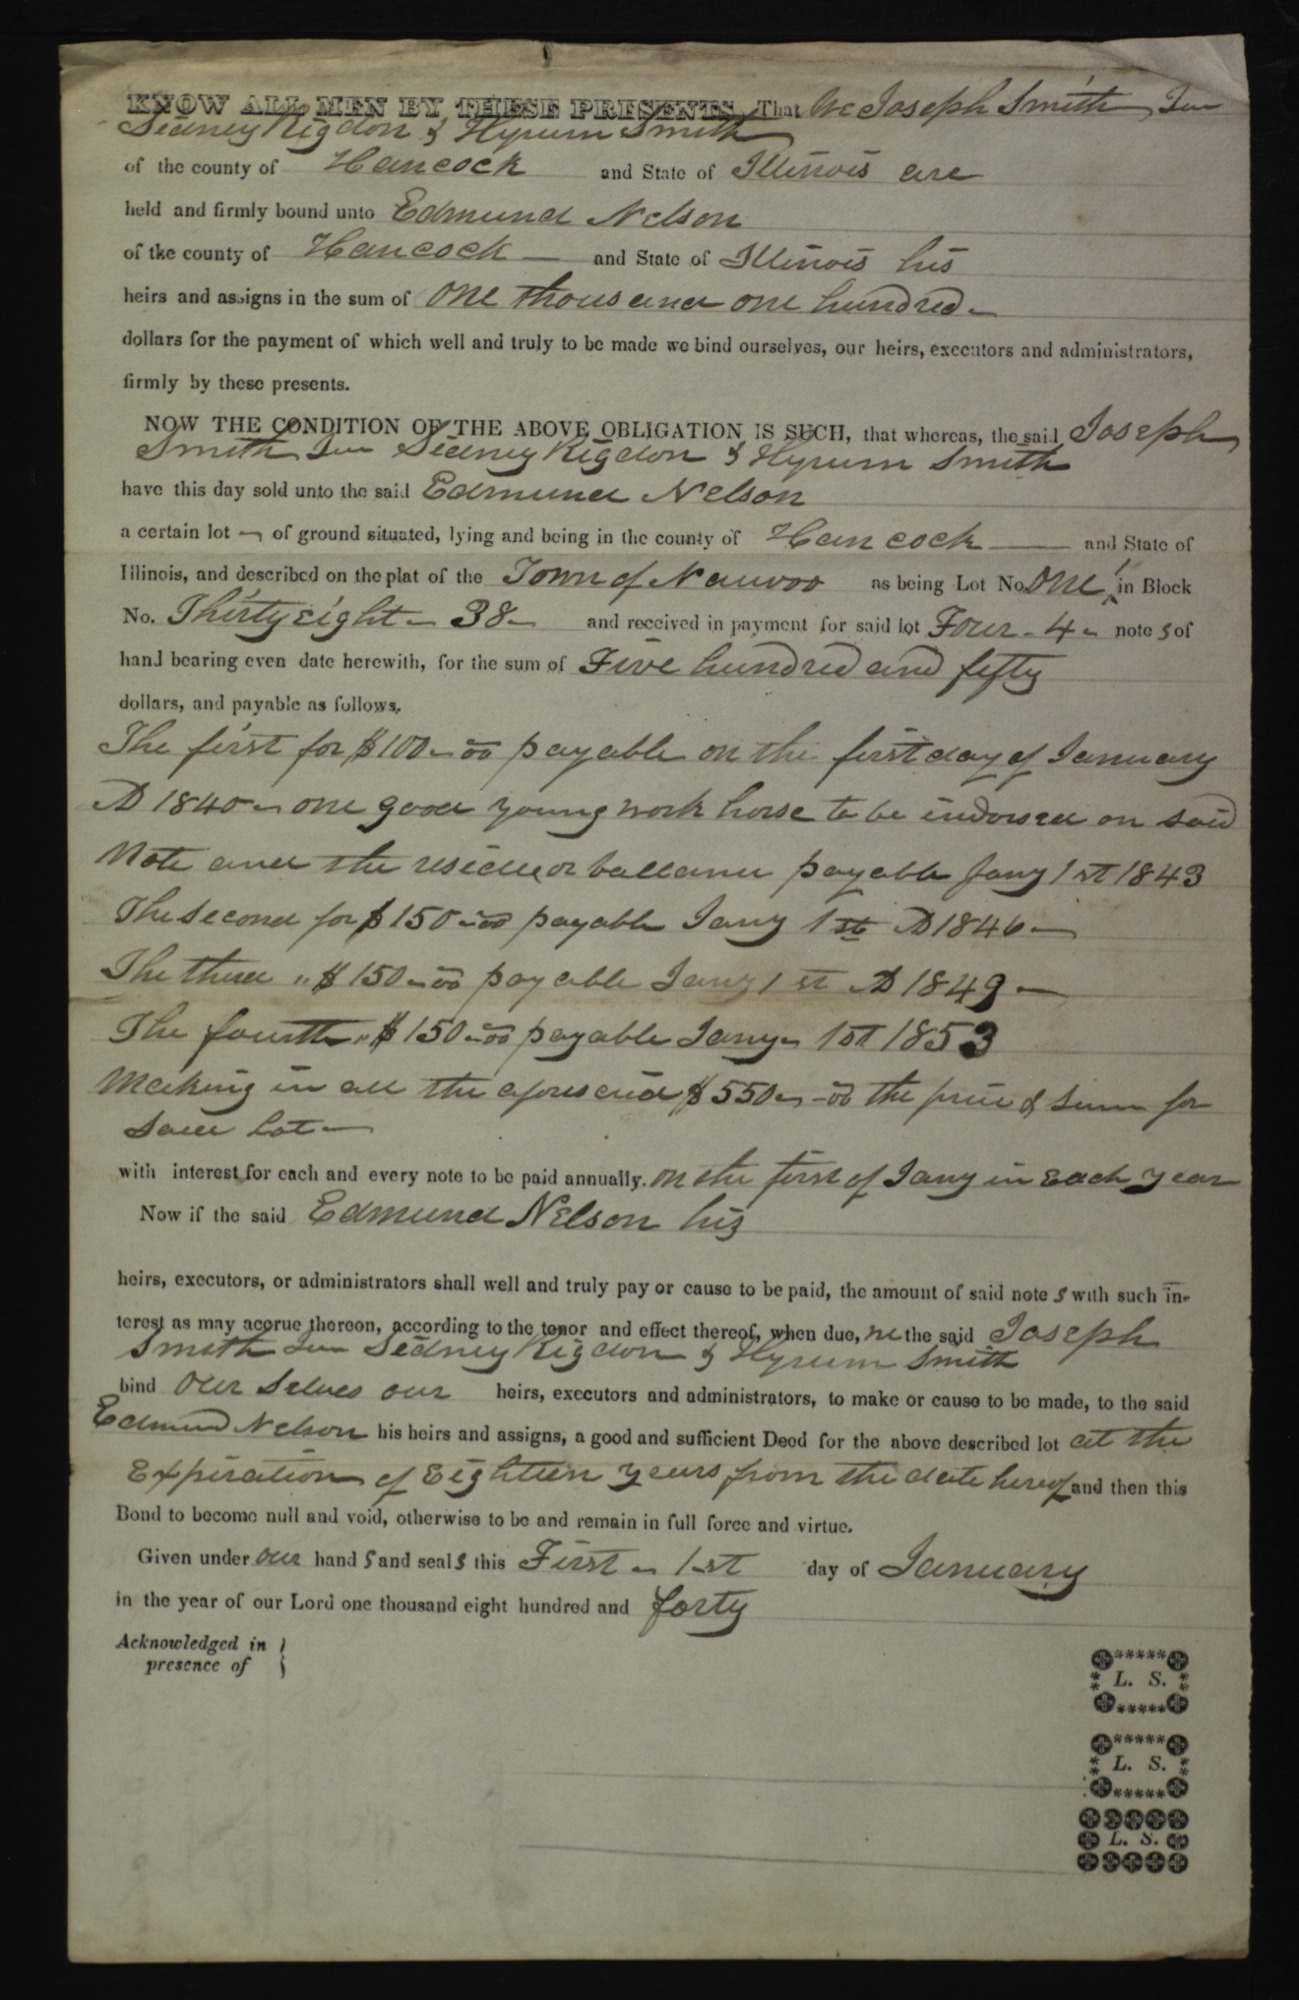 KNOW ALL MEN BY THESE PRESENTS, That We Joseph Smith Jun
Sidney Rigdon & Hyrum Smith
of the county of Hancock and State of Illinois are
held and firmly bound unto Edmund Nelson
of tke county of Hancock — and State of Illinois his
heirs and assigns in the sum of One thousand one hundred
dollars for the payment of which well and truly to be made we bind ourselves, our heirs, executors and administrators,
firmly by these presents.
NOW THE CONDITION OF THE ABOVE OBLIGATION IS SUCH, that whereas, the said Joseph
Smith Jun Sidney Rigdon & Hyrum Smith
have this day sold unto the said Edmund Nelson
a certain lot of ground situated, lying and being in the county of Hancock — and State of
Illinois, and described on the plat of the Town of Nauvoo as being Lot No. One in Block
No. Thirty eight - 38 - and received in payment for said lot Four - 4 - note s of
hand bearing even date herewith, for the sum of Five hundred and fifty
dollars, and payable as follows,
The first for $100-00 payable on the first day of January
AD 1840 - one good young work horse to be indorsed on said
Note and the residue or ballance payable Jany 1st 1843
The second for $150-00 payable Jany 1st AD 1846 —
The third " $150-00 payable Jany 1st AD 1849 —
The fourth " $150-00 payable Jany 1st 1853
Making in all the aforesaid $550-00 the price & sum for
said Lot —
with interest for each and every note to be paid annually. on the first of Jany in Each year
Now if the said Edmund Nelson his
heirs, executors, or administrators shall well and truly pay or cause to be paid, the amount of said note s with such in-
terest as may acorue thereon, according to the tenor and effect thereof, when due, we the said Joseph
Smith Jun Sidney Rigdon & Hyrum Smith
bind our selves our heirs, executors and administrators, to make or cause to be made, to the said
Edmund Nelson his heirs and assigns, a good and sufficient Deed for the above described lot at the
Expiration of Eighteen years from the date hereof and then this
Bond to become null and void, otherwise to be and remain in full force and virtue.
Given under our hand s and seal s this First - 1st day of January
in the year of our Lord one thousand eight hundred and forty
Acknowledged in
presence of
L. S.
L. S.
L. S.